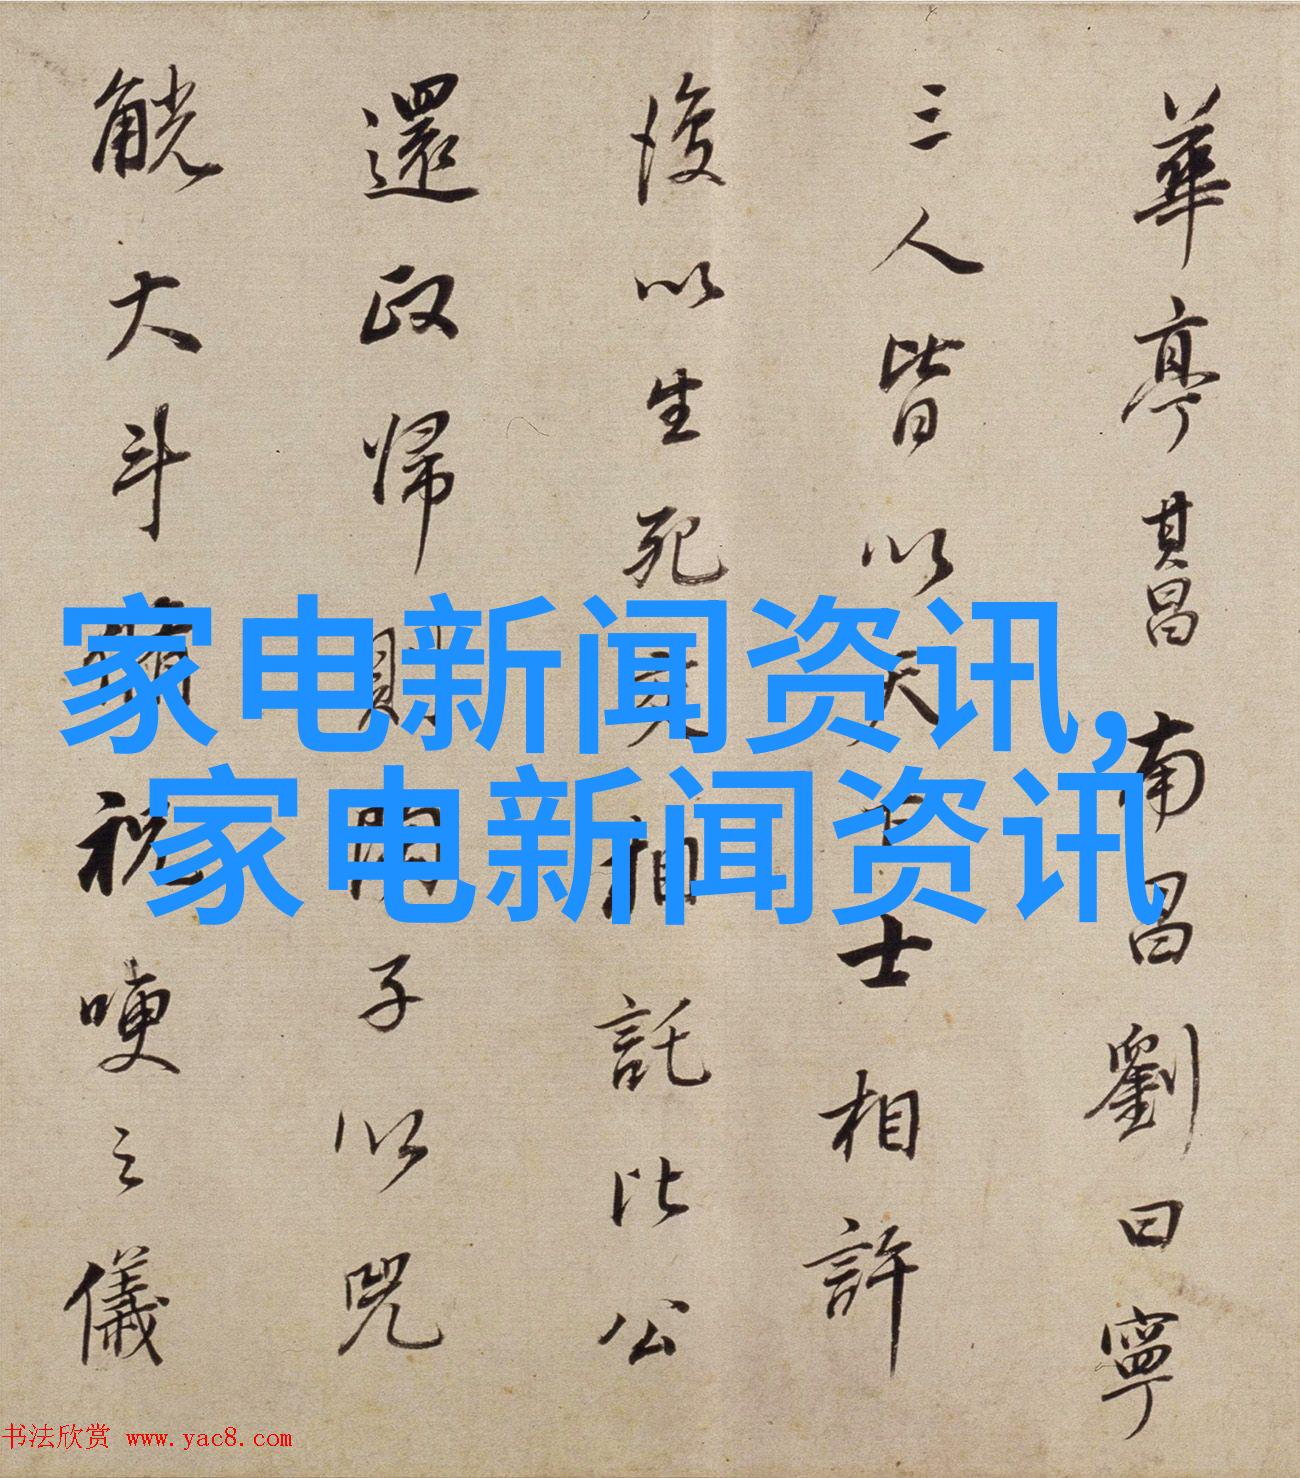 華亭其昌南昌劉曰寧
三人皆以天下士相許
後以生死交相託比公
還政歸則開子以兕
觥大斗脩祝哽之儀
家电新闻资讯,
家电新闻资讯
书法欣赏 www.yac8.com